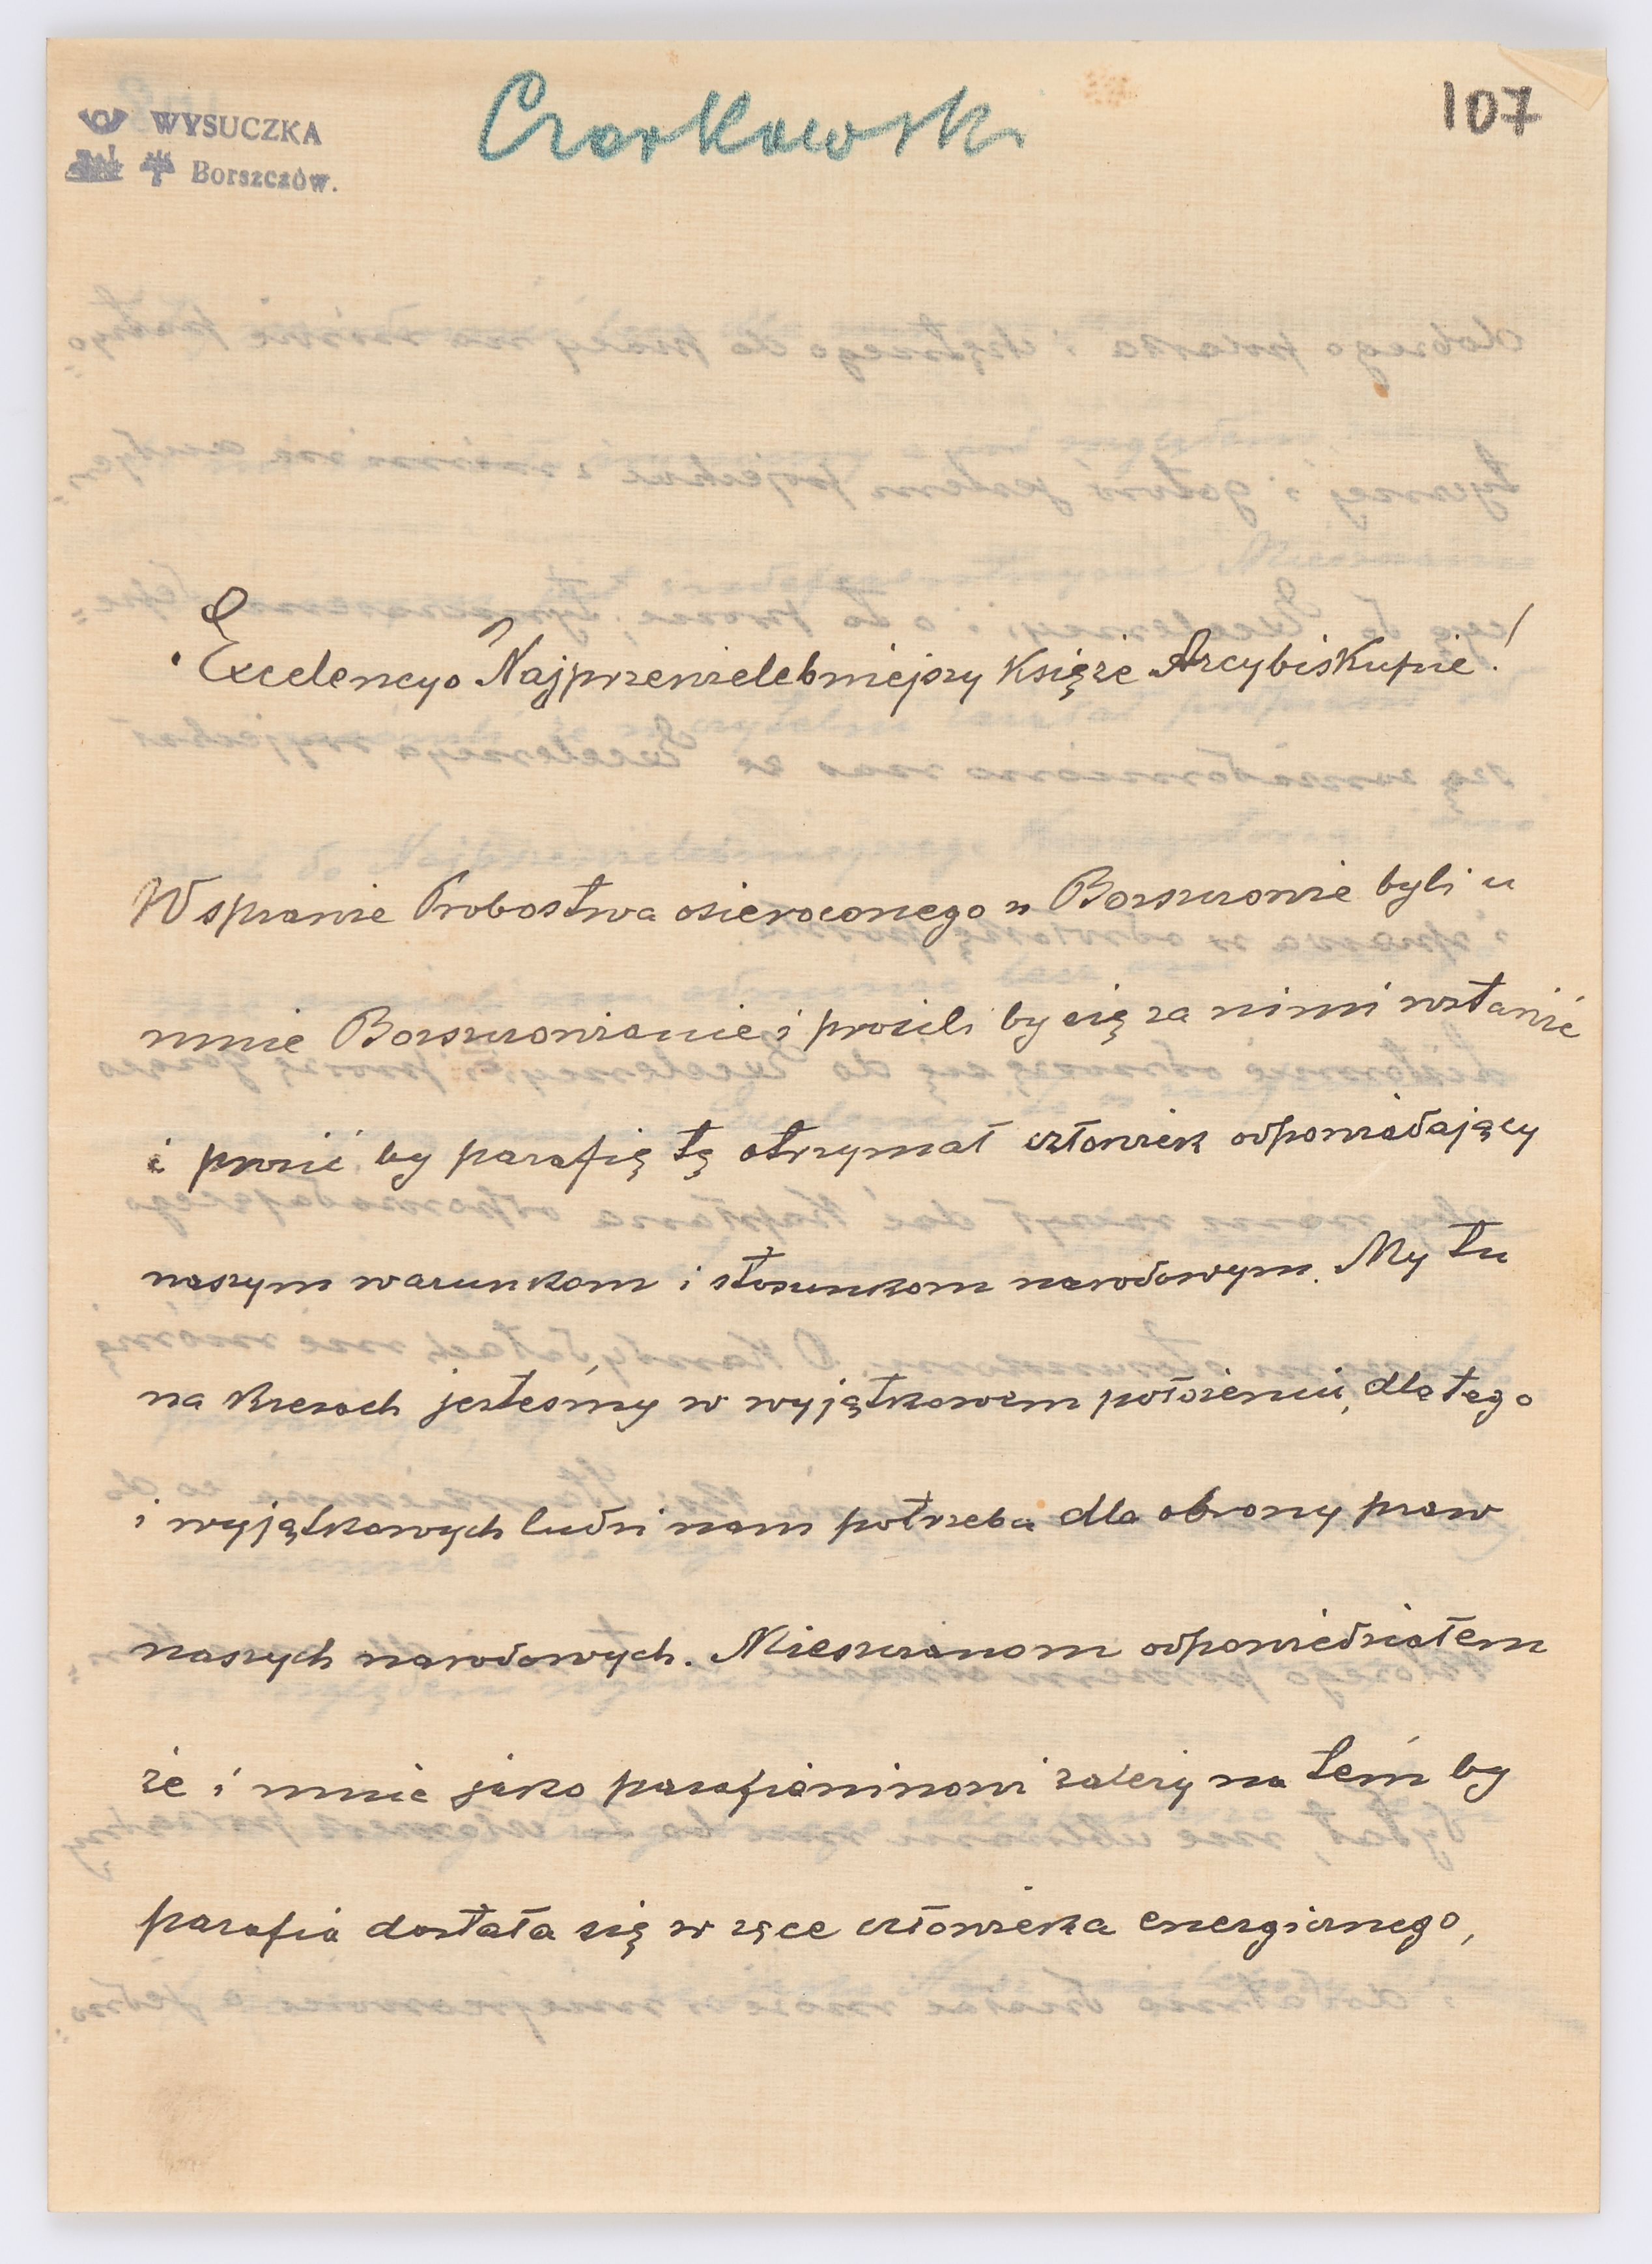 WYSUCZKA
Borszczów.
Czarkowski
107
Excelencyo Najprzewielebniejszy Księże Arcybiskupie!
W sprawie Probostwa osieroconego w Borszczowie byli u
mnie Borszczowianie i prosili by się za nimi wstawić
i prosić by parafię tę otrzymał człowiek odpowiadający
naszym warunkom i stosunkom narodowym. My tu
na Kresach jesteśmy w wyjątkowem położeniu, dla tego
i wyjątkowych ludzi nam potrzeba dla obrony praw
naszych narodowych. Mieszczanom odpowiedziałem
że i mnie jako parafianinowi zależy na tém by
parafia dostała się w ręce człowieka energicznego,